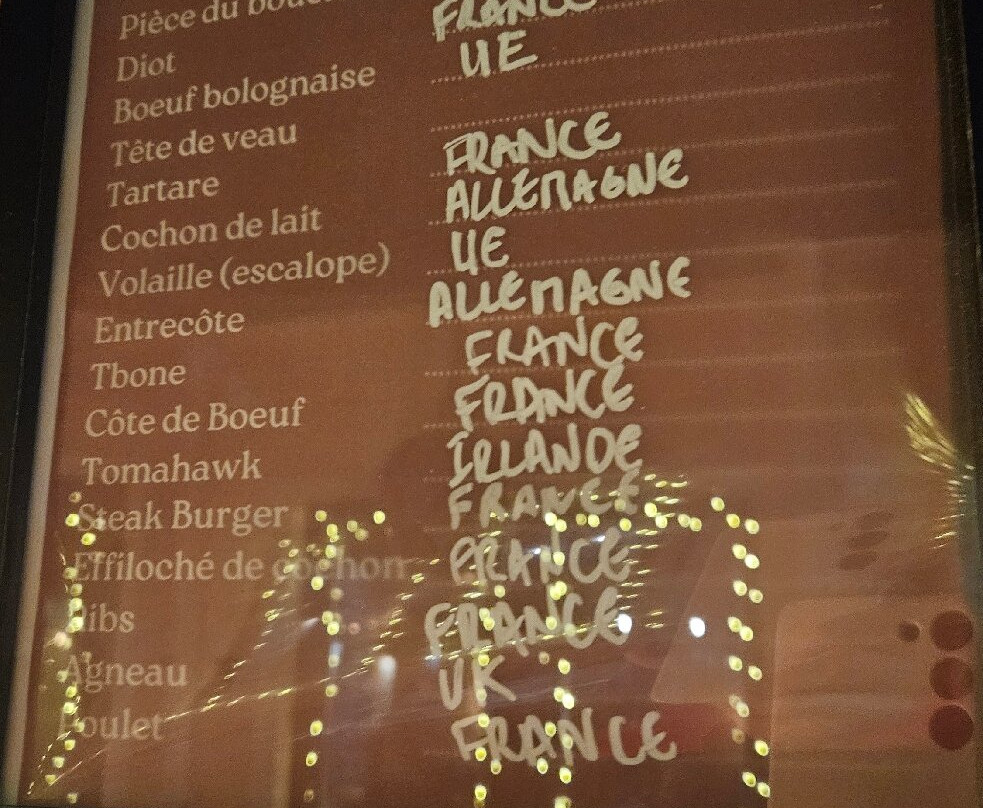 Pièce du
Diot FRANCE
Boeuf bolognaise UE
Tête de veau
Tartare FRANCE
Cochon de lait ALLEMAGNE
Volaille (escalope) UE
Entrecôte ALLEMAGNE
Tbone FRANCE
Côte de Boeuf FRANCE
Tomahawk IRLANDE
Steak Burger FRANCE
Effiloché de cochon FRANCE
Ribs FRANCE
Agneau UK
Poulet FRANCE